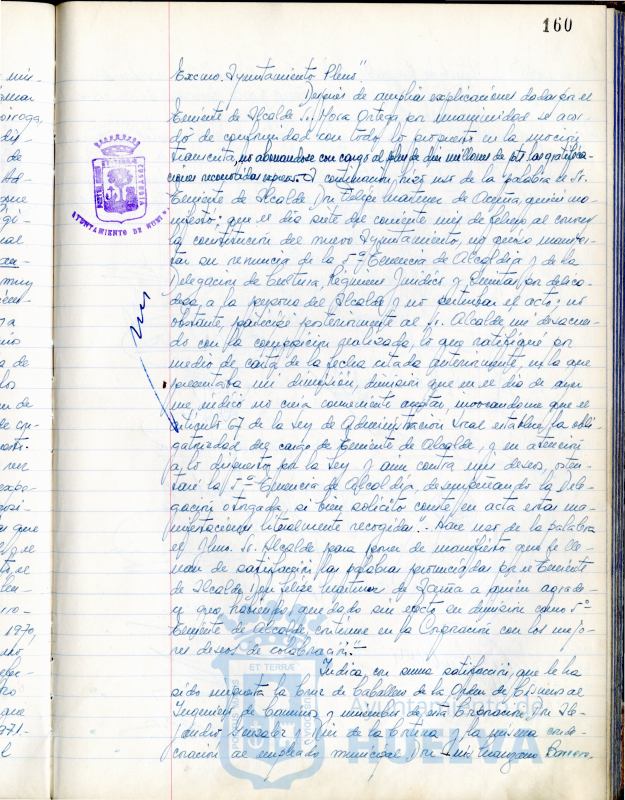 160
Excmo. Ayuntamiento Pleno".
Después de amplias explicaciones dadas por el
Teniente de Alcalde Sr. Mora Ortega, por unanimidad se acor-
dó de conformidad con todo lo propuesto en la moción
transcrita, no abonándose con cargo al plus de diez millones de pts las gratifica-
ciones reconocidas expresas. A continuación, hace uso de la palabra el Sr.
Teniente de Alcalde Don Felipe Martínez de Acuña, quien ma-
nifestó: que el día siete del corriente mes de febrero al conocer
la constitución del nuevo Ayuntamiento, no quiso manifes-
tar su renuncia de la 5ª Tenencia de Alcaldía y de la
Delegación de Cultura, Régimen Jurídico y por delica-
deza, a la persona del Alcalde y no perturbar el acto; no
obstante, participé posteriormente al Sr. Alcalde, mi desacuer-
do con la composición realizada, lo que ratifiqué por
medio de carta de la fecha citada anteriormente, en la que
presentaba mi dimisión, dimisión que en el día de ayer
me indicó no creía conveniente aceptar, invocándome que el
artículo 67 de la Ley de Administración Local establece la obli-
gatoriedad del cargo de Teniente de Alcalde, y en atención
a lo dispuesto por la Ley y aun contra mis deseos, osten-
taré la 5ª Tenencia de Alcaldía, desempeñando la Dele-
gación otorgada, si bien solicito conste en acta estas ma-
nifestaciones literalmente recogidas". Hace uso de la palabra
el Ilmo. Sr. Alcalde para poner de manifiesto que le lle-
nan de satisfacción las palabras pronunciadas por el Teniente
de Alcalde Don Felipe Martínez de Acuña a quien agrade-
ce que, habiendo quedado sin efecto su dimisión como 5º
Teniente de Alcalde, continúe en la Corporación con los mejo-
res deseos de colaboración.
Indica, con suma satisfacción, que le ha
sido impuesta la Cruz de Caballero de la Orden de Cisneros al
Ingeniero de Caminos y miembro de esta Corporación Don Ale-
jandro González y de la Cortina y la misma conde-
coración al empleado municipal Don Luis Manzano Borrero.
AYUNTAMIENTO DE HUELVA
ET TERRAE
Ayuntamiento de
HUELVA
1970,